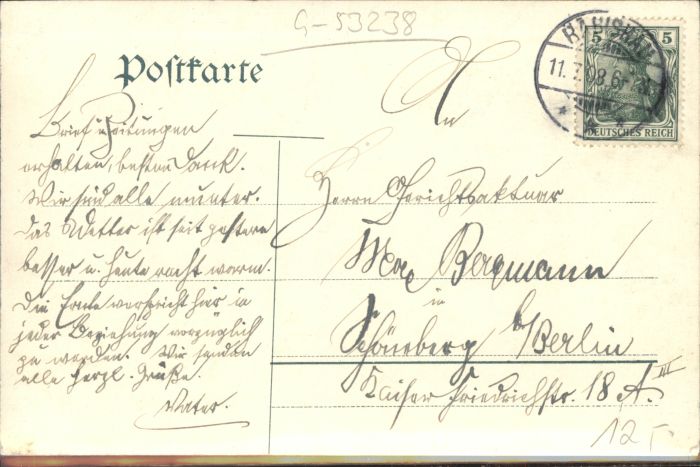 G-53238
Postkarte
5 5
DEUTSCHES REICH
11. 7. 08 6-
An
Brief u. Zeitungen
erhalten, besten Dank.
Wir sind alle munter.
Das Wetter ist seit gestern
besser u. heute recht warm.
Die Ernte verspricht hier in
jeder Beziehung vorzüglich
zu werden. Wir senden
alle herzl. Grüße.
Vater.
Herrn Gerichtsaktuar
Max Bergmann
in
Schöneberg b/Berlin
Kaiser Friedrichstr. 18 A. III
12,-